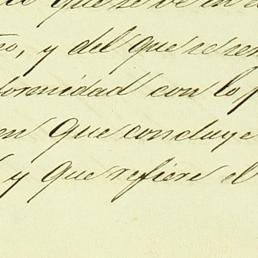 que se ve en
no, y del que se re
formidad con lo p
en que concluye
y que refiere el